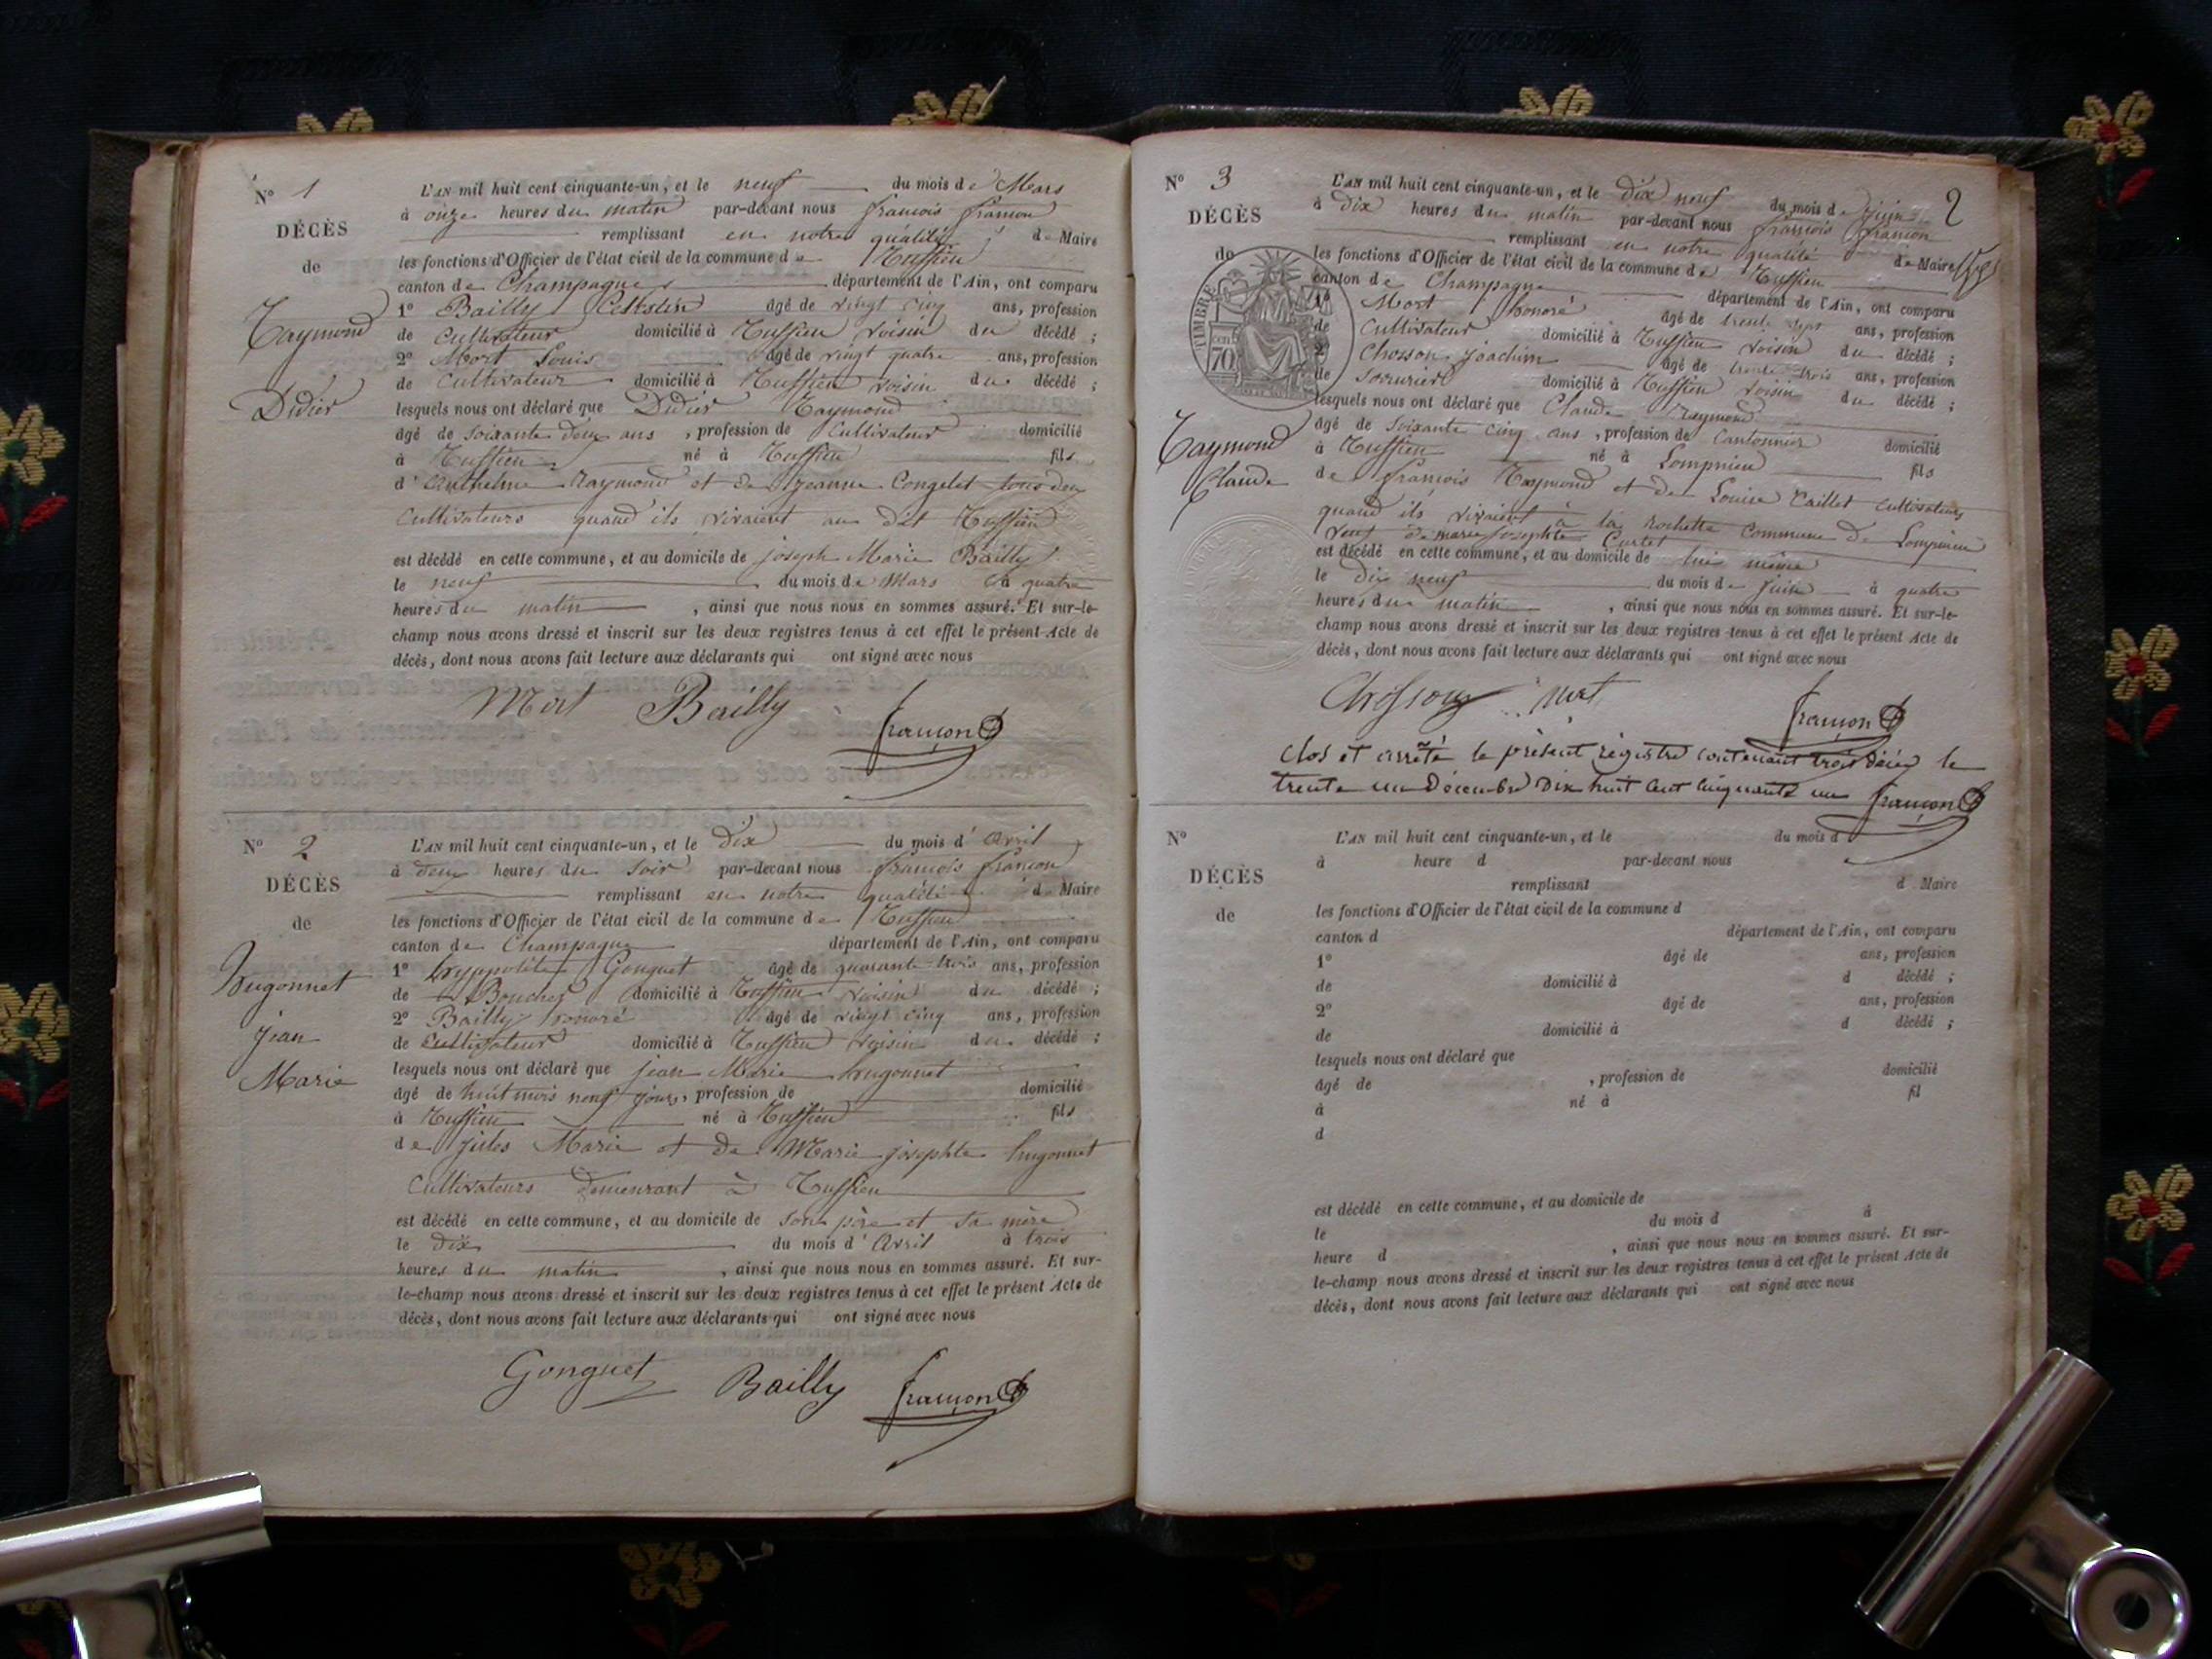 N° 1
DÉCÈS
de
Raymond
Didier
L'AN mil huit cent cinquante-un, et le neuf du mois de Mars
à onze heures du matin par-devant nous françois françon
remplissant en notre qualité de Maire
les fonctions d'Officier de l'état civil de la commune de Ruffieu
canton de Champagne département de l'Ain, ont comparu
1° Bailly Célestin âgé de vingt cinq ans, profession
de Cultivateur domicilié à Ruffieu voisin du décédé ;
2° Mort Louis âgé de vingt quatre ans, profession
de Cultivateur domicilié à Ruffieu voisin du décédé ;
lesquels nous ont déclaré que Didier Raymond
âgé de soixante deux ans, profession de Cultivateur domicilié
à Ruffieu né à Ruffieu fils
d'Anthelme Raymond et de Jeanne Congelet tous deux
Cultivateurs quand ils vivaient au dit Ruffieu
est décédé en cette commune, et au domicile de joseph Marie Bailly
le neuf du mois de Mars à quatre
heures du matin, ainsi que nous nous en sommes assuré. Et sur-le-
champ nous avons dressé et inscrit sur les deux registres tenus à cet effet le présent Acte de
décès, dont nous avons fait lecture aux déclarants qui ont signé avec nous
Mort Bailly françon
N° 2
DÉCÈS
de
hugonnet
jean
Marie
L'AN mil huit cent cinquante-un, et le dix du mois d'Avril
à deux heures du soir par-devant nous françois françon
remplissant en notre qualité de Maire
les fonctions d'Officier de l'état civil de la commune de Ruffieu
canton de Champagne département de l'Ain, ont comparu
1° hyppolite Gonguet âgé de quarante trois ans, profession
de Boucher domicilié à Ruffieu voisin du décédé ;
2° Bailly honoré âgé de vingt cinq ans, profession
de Cultivateur domicilié à Ruffieu voisin du décédé ;
lesquels nous ont déclaré que jean Marie hugonnet
âgé de huit mois neuf jours, profession de domicilié
à Ruffieu né à Ruffieu fils
de jules Marie et de Marie josephte hugonnet
Cultivateurs demeurant à Ruffieu
est décédé en cette commune, et au domicile de son père et sa mère
le dix du mois d'Avril à trois
heures du matin, ainsi que nous nous en sommes assuré. Et sur-
le-champ nous avons dressé et inscrit sur les deux registres tenus à cet effet le présent Acte de
décès, dont nous avons fait lecture aux déclarants qui ont signé avec nous
Gonguet Bailly françon
2
N° 3
DÉCÈS
de
TIMBRE
70 cent
Raymond
Claude
L'AN mil huit cent cinquante-un, et le dix neuf du mois de juin
à dix heures du matin par-devant nous françois françon
remplissant en notre qualité de Maire
les fonctions d'Officier de l'état civil de la commune de Ruffieu
canton de Champagne département de l'Ain, ont comparu
1° Mort honoré âgé de trente sept ans, profession
de Cultivateur domicilié à Ruffieu voisin du décédé ;
2° Chosson joachim âgé de trente trois ans, profession
de Serrurier domicilié à Ruffieu voisin du décédé ;
lesquels nous ont déclaré que Claude Raymond
âgé de soixante cinq ans, profession de Cantonnier domicilié
à Ruffieu né à Lompnieu fils
de françois Raymond et de Louise Caillet Cultivateurs
quand ils vivaient à la Rochette commune de Lompnieu
veuf de marie josephte Curtet
est décédé en cette commune, et au domicile de lui même
le dix neuf du mois de juin à quatre
heures du matin, ainsi que nous nous en sommes assuré. Et sur-le-
champ nous avons dressé et inscrit sur les deux registres tenus à cet effet le présent Acte de
décès, dont nous avons fait lecture aux déclarants qui ont signé avec nous
Chosson mort françon
Clos et arrêté le présent régistre contenant trois décès le
trente un décembre dix huit cent cinquante un françon
N°
DÉCÈS
de
L'AN mil huit cent cinquante-un, et le du mois d
à heure d par-devant nous
remplissant d Maire
les fonctions d'Officier de l'état civil de la commune d
canton d département de l'Ain, ont comparu
1° âgé de ans, profession
de domicilié à d décédé ;
2° âgé de ans, profession
de domicilié à d décédé ;
lesquels nous ont déclaré que
âgé de , profession de domicilié
à né à fil
d
est décédé en cette commune, et au domicile de
le du mois d à
heure d , ainsi que nous nous en sommes assuré. Et sur-
le-champ nous avons dressé et inscrit sur les deux registres tenus à cet effet le présent Acte de
décès, dont nous avons fait lecture aux déclarants qui ont signé avec nous